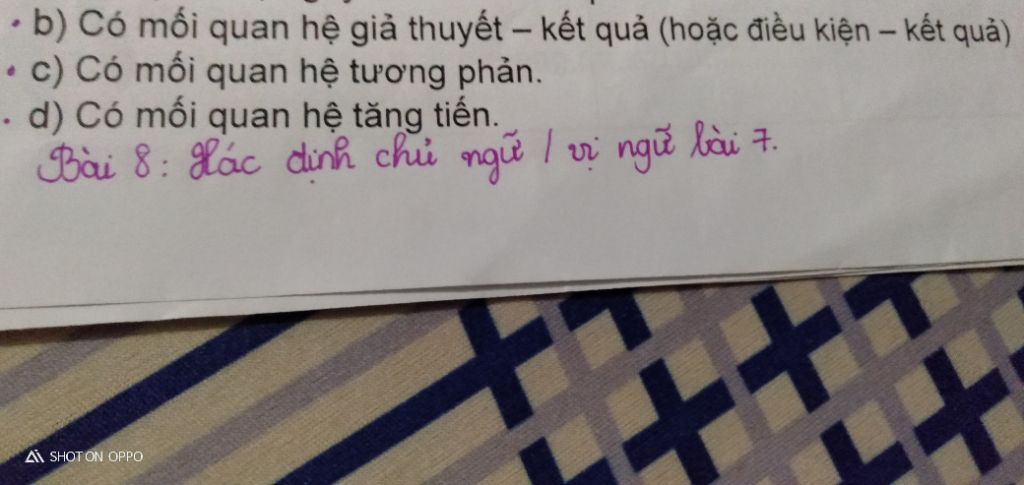 b) Có mối quan hệ giả thuyết – kết quả (hoặc điều kiện – kết quả)
c) Có mối quan hệ tương phản.
d) Có mối quan hệ tăng tiến.
Bài 8: Xác định chủ ngữ / vị ngữ bài 7.
SHOT ON OPPO